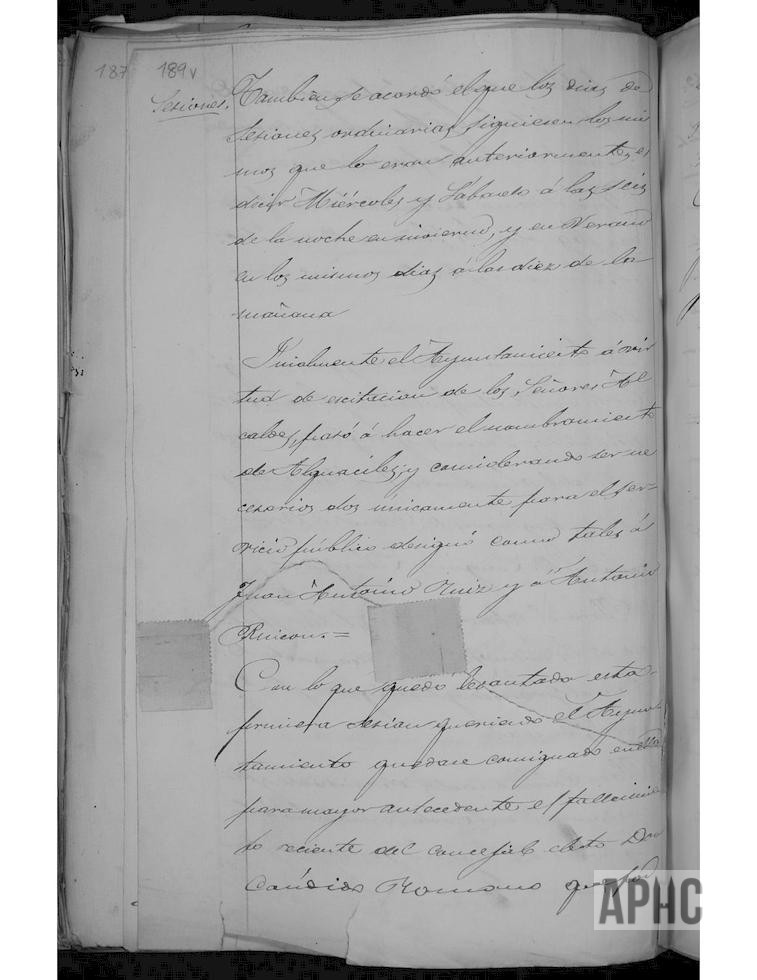 187 189v
Sesiones.
Tambien se acordó el que los dias de
Sesiones ordinarias siguiesen los mis
mos que lo eran anteriormente, es
decir Miércoles y Sábados á las seis
de la noche en invierno, y en Verano
en los mismos dias á las diez de la
mañana
Finalmente el Ayuntamiento á vir
tud de escitacion de los Señores Al
caldes, pasó á hacer el nombramiento
de Alguaciles; y considerando ser ne
cesarios dos únicamente para el ser-
vicio público designó como tales á
Juan Antonio Ruiz y á Antonio
Rincon.=
Con lo que quedó levantada esta
primera sesion queriendo el Ayun
tamiento quedase consignado en ella
para mayor antecedente el fallecimien
to reciente del concejal electo Don
Cándido Romano que por
APHC